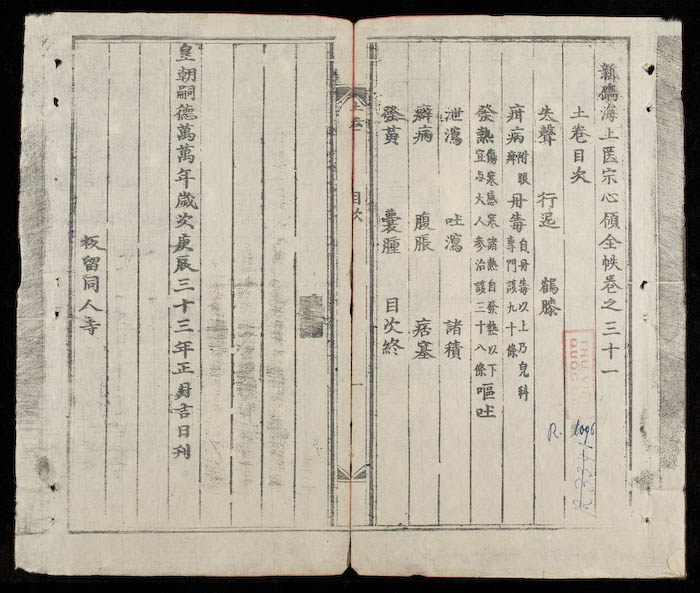 新鐫海上医宗心領全帙卷之三十一
土卷目次
失聲 行迟 鶴膝
疳病 附眼疳 丹毒 自丹毒以上乃兒科專門該九十條
發熱 傷寒感寒諸熱自發熱以下宜与大人參治該三十八條 嘔吐
泄瀉 吐瀉 諸積
癖病 腹脹 痞塞
發黃 囊腫 目次終
土卷 目次 一
皇朝嗣德萬萬年歲次庚辰三十三年正月吉日刊
板留同人寺
R. 1096